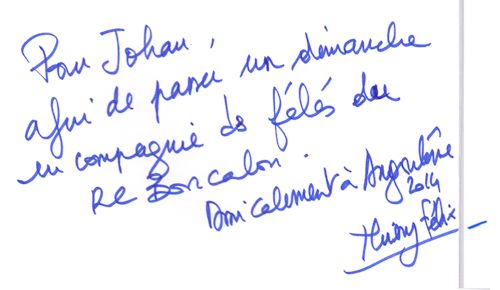 Pour Johan,
afin de passer un démanche
en compagnie des félés du
RC Boncalon.
Amicalement à Angoulême
2014
Thierry Félix